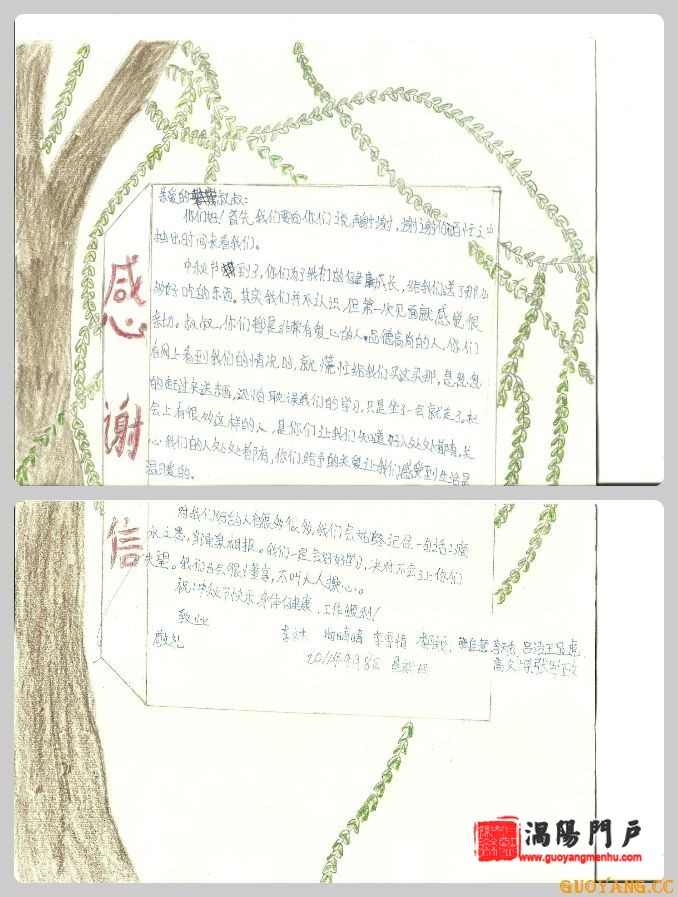 感谢信
亲爱的叔叔:
你们好!首先我们要向你们说声谢谢,谢谢你们百忙之中
抽出时间来看我们。
中秋节到了,你们为了我们的健康成长,给我们送了那么
多好吃的东西。其实我们并不认识,但第一次见面就感觉很
亲切。叔叔,你们都是非常有爱心的人。品德高尚的人,你们
在网上看到我们的情况的,就慌忙给我们买这买那,急急忽忽
的赶过来送东西,还没耽误我们的学习,只是坐了一会就走了。社
会上有很多这样的人,是你们让我们知道好人处处都有,关
心我们的人处处都有,你们给予的关爱让我们感受到生活是
温暖的。
对我们帮助的人有很多很多,我们会始终记住一句话:滴
水之恩,当涌泉相报。我们一定会好好学习,决对不会让你们
失望。我们也会很懂事,不叫大人操心。
祝:中秋节快乐,身体健康,工作顺利!
致此
敬礼
李雪情 李天秀 吕洁 王显虎
高文 张军政
2011年9月8日 星期四
渦陽門戶
www.guoyangmenhu.com
GUOYANG.CC